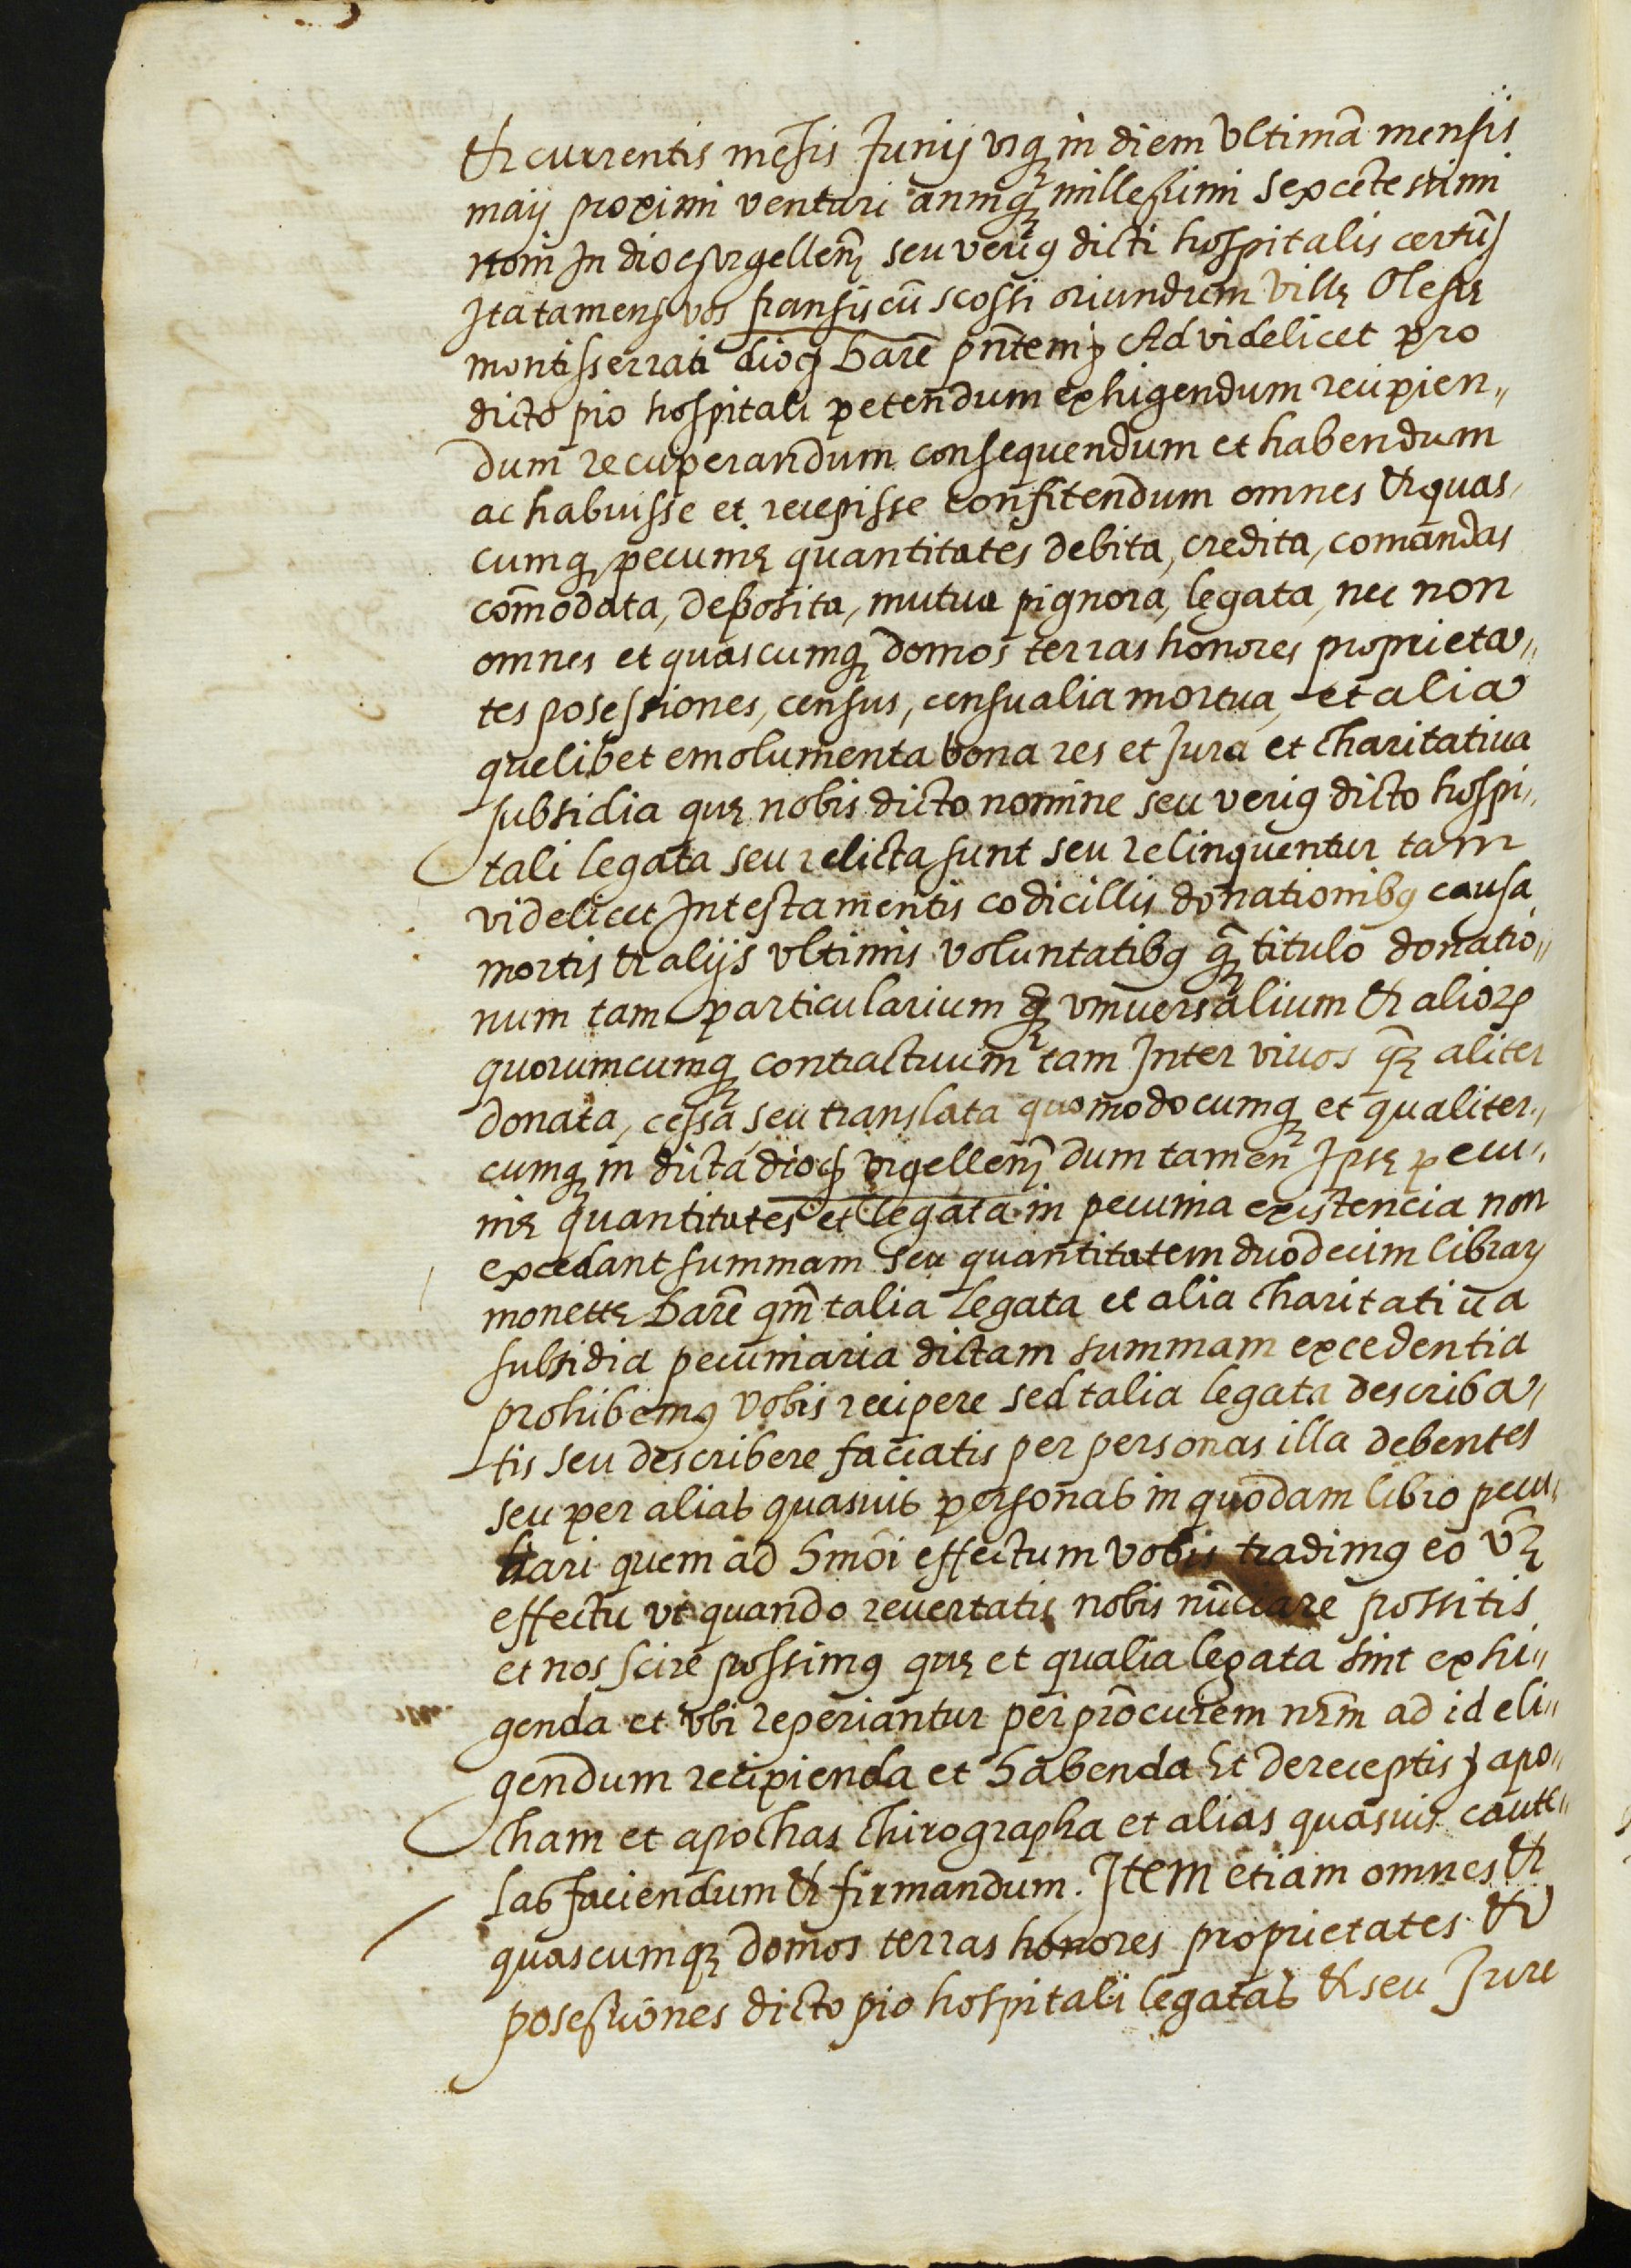 Et currentis mẽsis Junij vsq̃ in diem vltimã mensis
maij proximi venturi anniq̃ millesimi sexcẽtesimi
noni In dioc̨ vrgelleñ seu veriꝰ dicti hospitalis certũ
Ita tamen vos fransiscũ scossi oriundum villę Olesę
montisserrati dioc̨ Barc̃ pñtem Ad videlicet pro
dicto pio hospitali petendum exhigendum recipien„
dum recuperandum consequendum et habendum
ac habuisse et recepisse confitendum omnes et quas,
cumq̨ pecunię quantitates debita, credita, comandas
com̃odata, deposita, mutua pignora, legata, nec non
omnes et quascumq̨ domos terras honores proprieta„
tes posessiones, census, censualia mortua, et alia
quelibet emolumenta bona res et Jura et charitatiua
subsidia quę nobis dicto nomine seu veriꝰ dicto hospi„
tali legata seu relicta sunt seu relinquentur tam
videlicet In testamentis codicillis donationibꝰ causa
mortis et alijs vltimis voluntatibꝰ q̃ titulo donatio„
num tam particularium q̃ vniuersalium et alioꝝ
quorumcumq̨ contractuum tam Inter viuos q̃ aliter
donata, cessa seu translata quomodocumq̨ et qualiter„
cumq̨ in dicta dioc̨ vrgelleñ dum tamen Ipsę pecu„
nię quantitates et legata in pecunia existencia non
excedant summam seu quantitatem duodecim libraꝝ
monetę Barc̃ qm̃ talia legata et alia charitatiua
subsidia pecuniaria dictam summam excedentia
prohibemꝰ vobis recipere sed talia legata describa„
tis seu describere faciatis per personas illa debentes
seu per alias quasuis personas in quodam libro pecu„
liari quem ad hmõi effectum vobis tradimꝰ eo vꝫ
effectu vt quando reuertatis nobis nũciare possitis
et nos scire possimꝰ quę et qualia legata sint exhi„
genda et vbi reperiantur per prõcurem nr̃m ad id eli„
gendum recipienda et habenda Et de receptis apo„
cham et apochas chirographa et alias quasuis caute„
las faciendum et firmandum. Item etiam omnes et
quascumq̨ domos terras honores proprietates et
posessiones dicto pio hospitali legatas et seu Jure